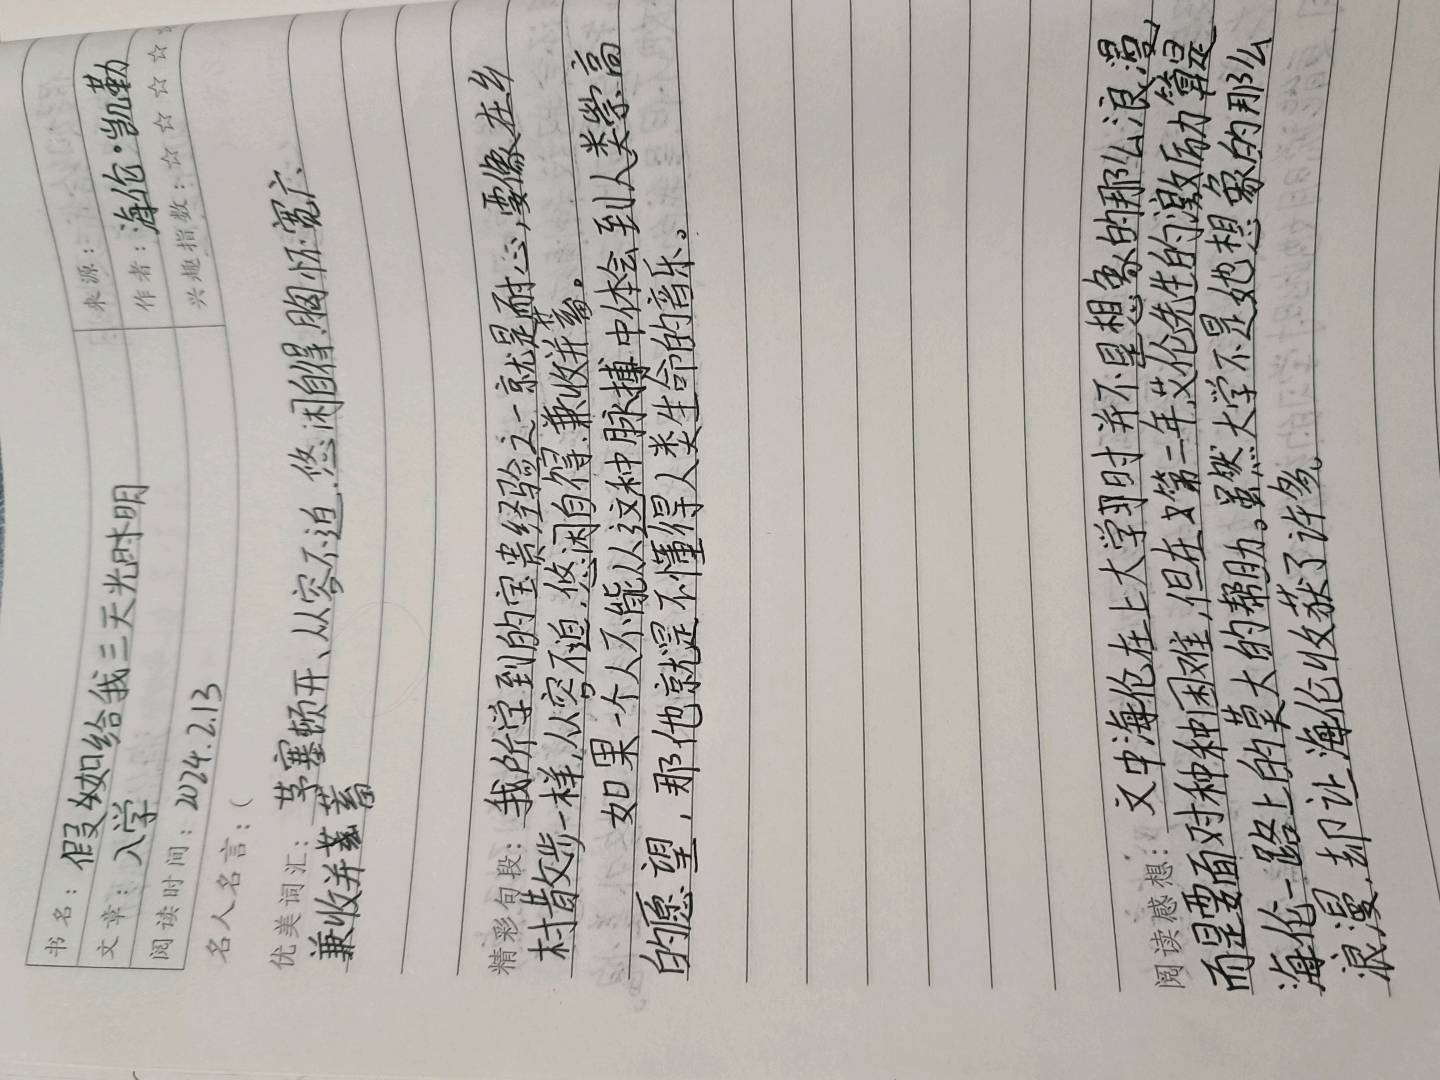 书名：假如给我三天光明 来源：
文章：入学 作者：海伦·凯勒
阅读时间：2024.2.13 兴趣指数：☆☆☆☆☆
名人名言：（
优美词汇：茅塞顿开、从容不迫、悠闲自得、胸怀宽广、
兼收并蓄
精彩句段：我所学到的宝贵经验之一就是耐心，要像在乡
村散步一样，从容不迫、悠闲自得、兼收并蓄。
如果一个人不能从这种脉搏中体会到人类崇高
的愿望，那他就是不懂得人类生命的音乐。
阅读感想：文中海伦在上大学时并不是想象的那么浪漫，
而是要面对种种困难，但在第二年艾伦先生的激励算是
海伦一路上的莫大的帮助。虽然大学不是她想象的那么
浪漫，却让海伦收获了许多。